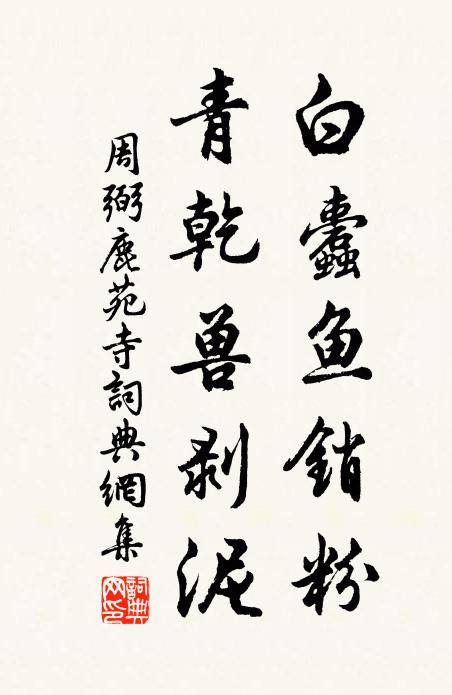 白蠹鱼銷粉
青乾兽剥泥
周弼鹿苑寺詞典網集
詞典网印